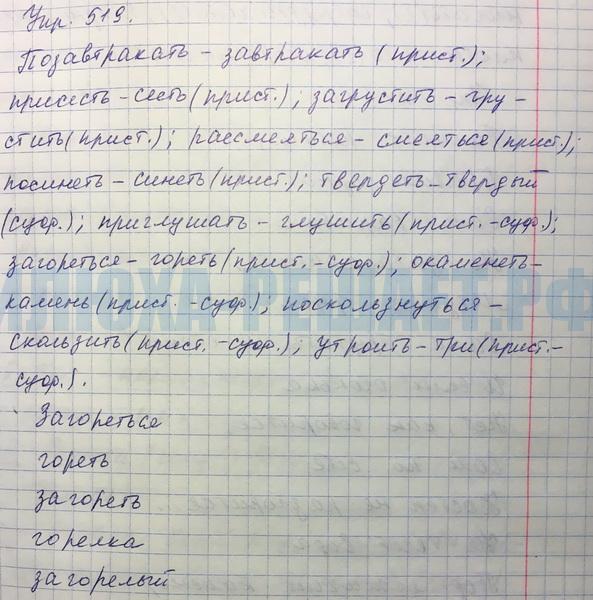 Упр. 519.
Позавтракать – завтракать (прист.);
присесть – сесть (прист.); загрустить – гру-
стить (прист.); рассмеяться – смеяться (прист.);
посинеть – синеть (прист.); твердеть – твердый
(суф.); приглушать – глушить (прист. – суф.);
загореться – гореть (прист. – суф.); окаменеть –
камень (прист. – суф.); поскользнуться –
скользить (прист. – суф.); утроить – три (прист. –
суф.).
Загореться
гореть
загореть
горелка
загорелый